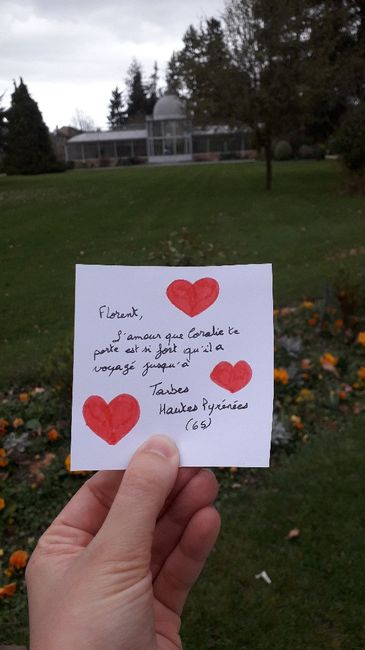 Florent,
L'amour que Coralie te
porte est si fort qu'il a
voyagé jusqu'à
Tarbes
Hautes Pyrénées
(65)